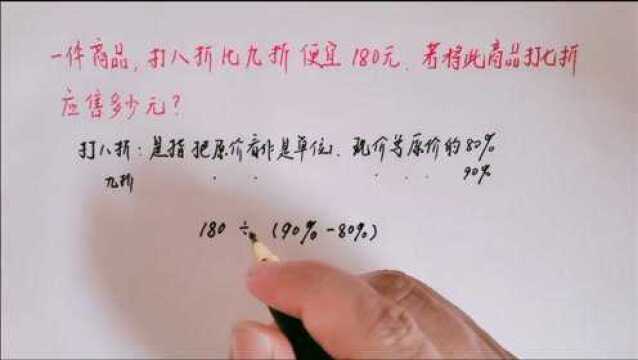 一件商品,打八折比九折便宜180元.若将此商品打七折
应售多少元?
打八折:是指把原价看作是单位.现价等原价的80%
九折 · · · · · 90%
180 ÷ (90%-80%)